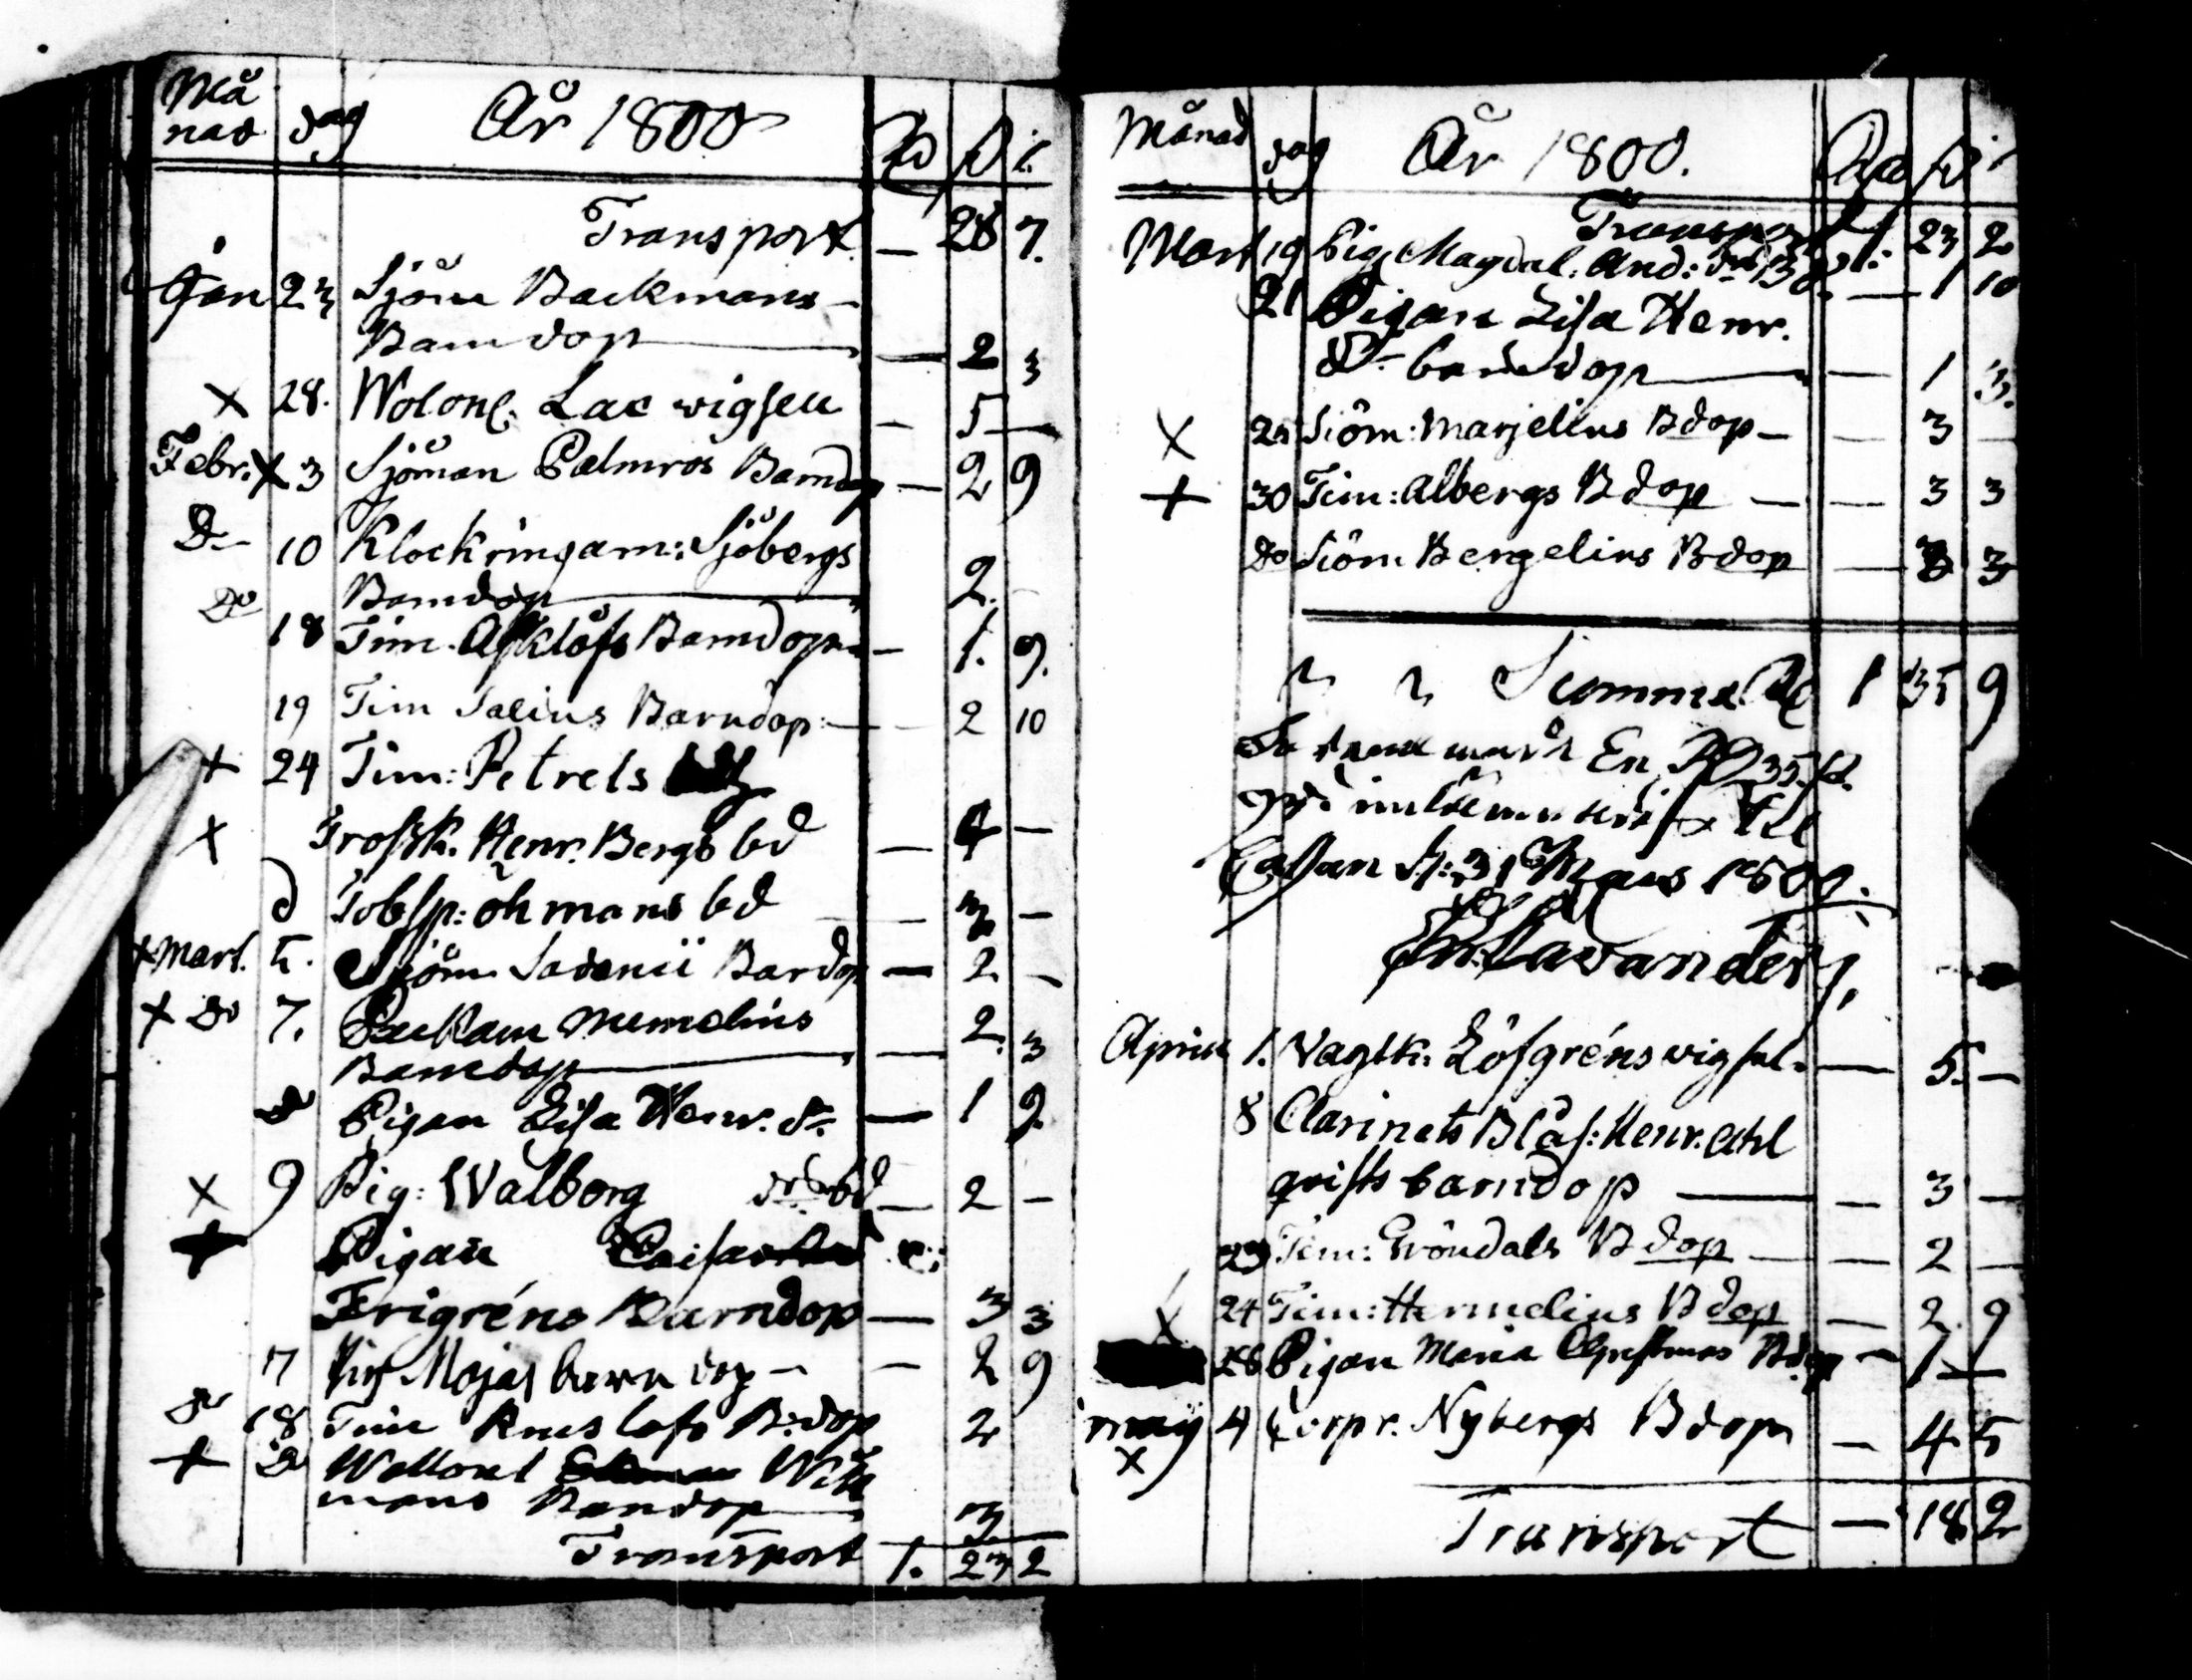 Må
nad dag År 1800 Rd ß r.
Transport — 28 7.
Jan 23 Sjöm Backmans
Barndop — 2 3
x 28. Wolont: Lac wigsell — 5 —
Febr. x 3 Sjöman Palmros Barndop — 2 9
Do 10 Klockringarn: Sjöbergs
Barndop 2.
Do 18 Tim. Asklöfs Barndop — 1. 9.
19 Tim Salius Barndop — 2 10
x 24 Tim: Petrels
x Trossk. Henr. Bergs bd — 4 —
d Tobsp: öhmans bd — 3 —
x Mart. 5. Sjöm Sadenii Bardop — 2 —
x Do 7. Munelius
Barndop — 2. 3
Do Pigan Lisa Henr. dr — 1 9
x 9 Pig: Walborg bd — 2 —
+ Pigan Caisa
Frigréns Barndop — 3 3
17 Majas barndop — — 2 9
Do 18 Tim Rneslöfs B:dop 2
+ Do Wollont Wik
mans Bandop 3
Transport 1. 23 2
Månad dag År 1800. Rd ß r
Transport 1. 23 2
Mart 19 Pig Magdal. And: dr Bd. — 1 10
21 Pigan Lisa Henr.
dr barndop — 1 3.
x 25 Siöm: Marjelius Bdop — — 3 —
+ 30 Tim: Albergs Bdop — — 3 3
Do Siöm Bergelius Bdop — 3 3
Summa Rd 1 35 9
En RD 35 ß.
Cassan d: 31 Mars 1800.
Lavander,
Aprill 1. Vagtk: Löfgréns wigsel — 5. —
8 Clarinets Blås: Henr. Ahl
qvists barndop — — 3 —
23 Tim: Gröndals Bdop — — 2 —
x 24 Tim: Hermelius Bdop — 2 9
26 Pigan Maria Bdop — 1 —
maij 4 Corpr. Nybergs Bdop — 4 5
x
Transport — 18 2